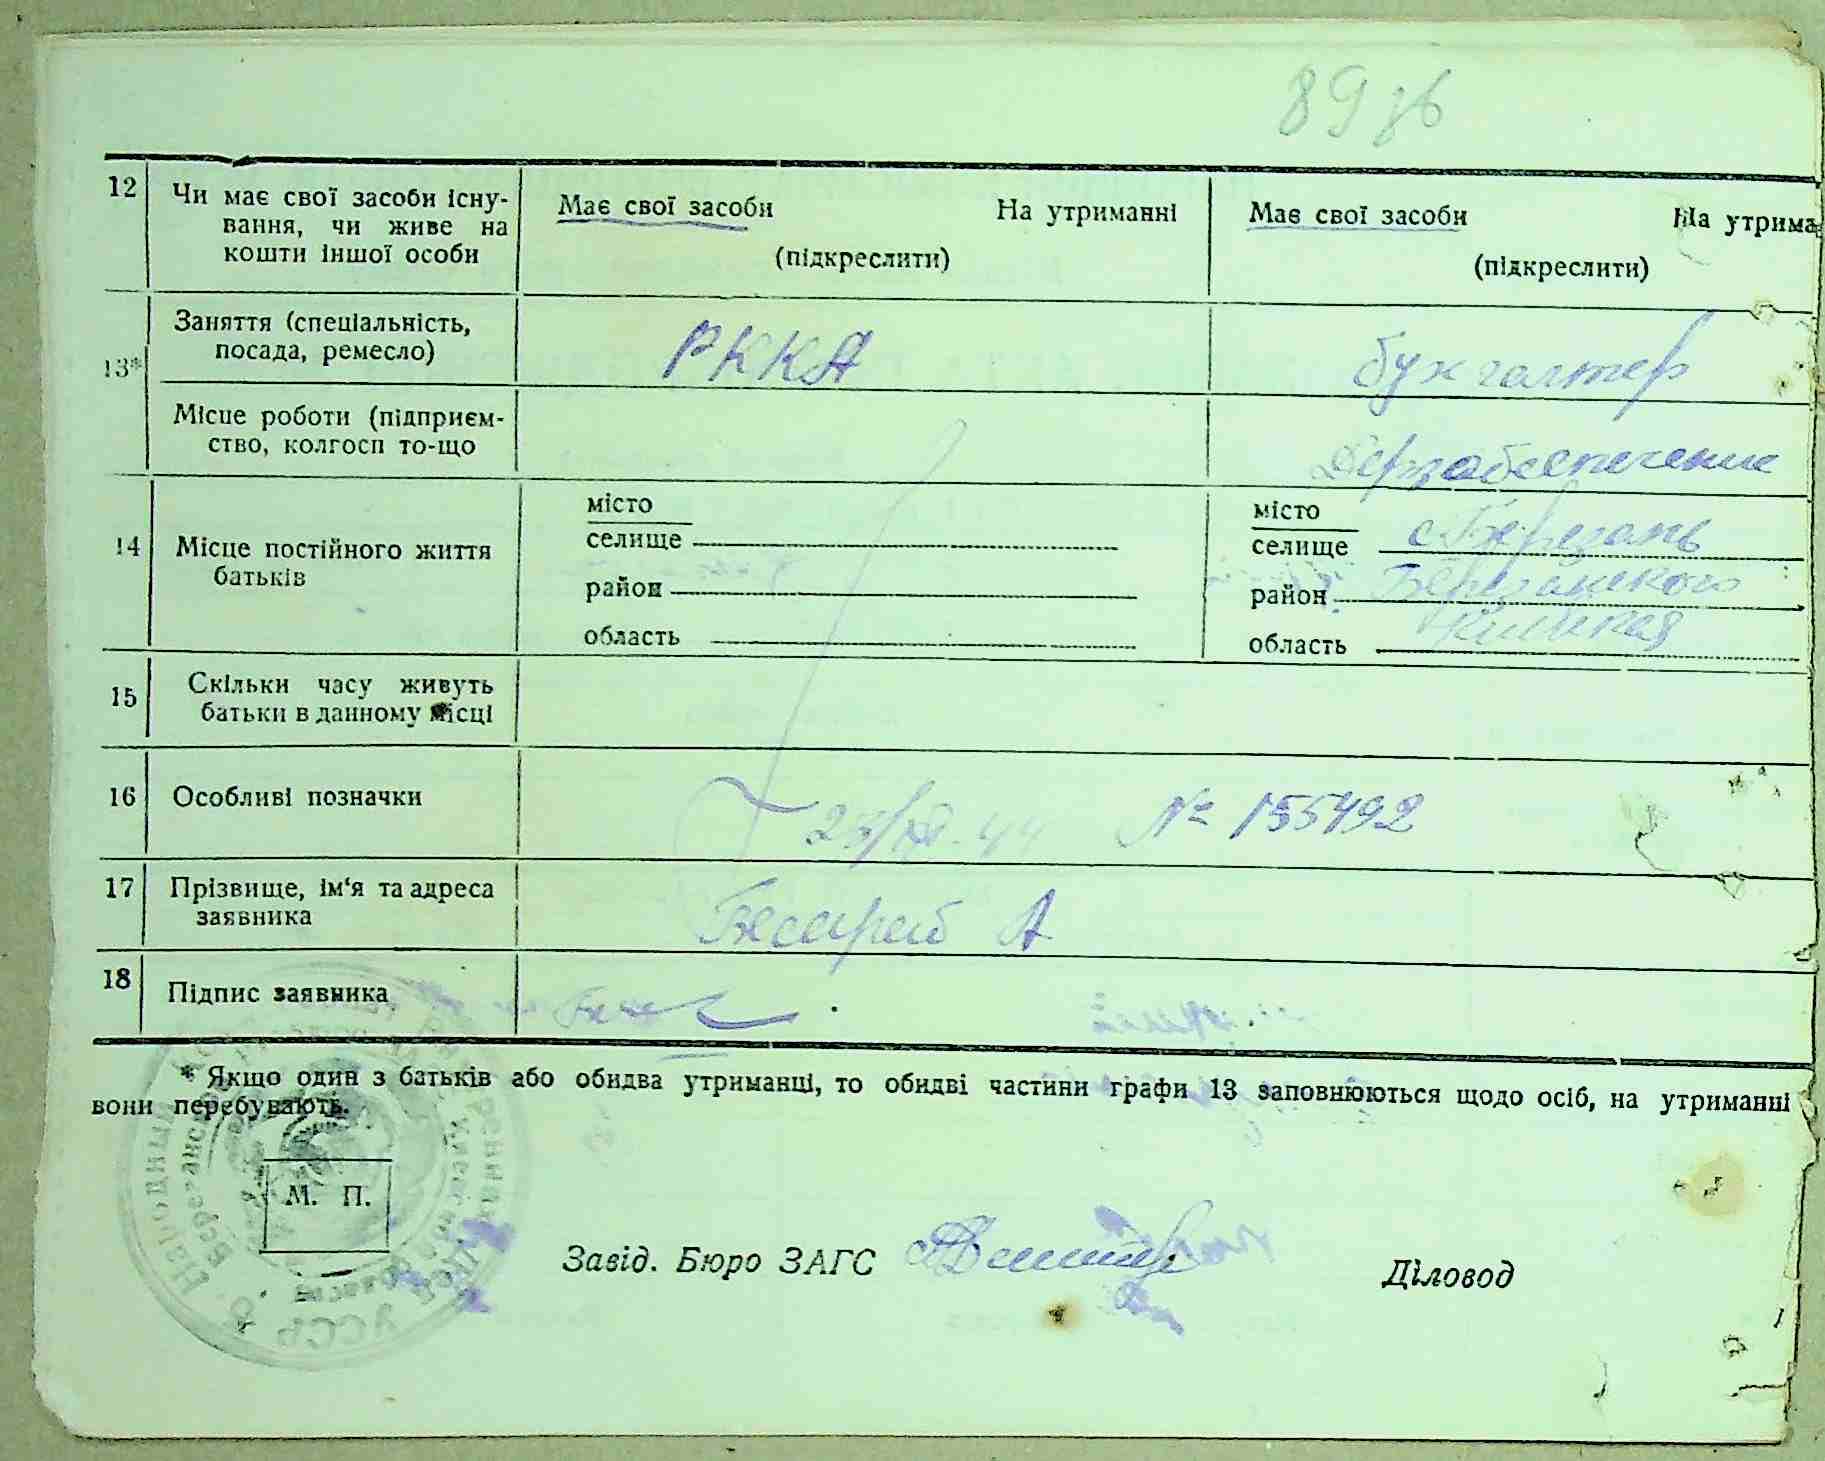 89 зв
12 Чи має свої засоби існу- Має свої засоби На утриманні Має свої засоби На утрима
вання, чи живе на
кошти іншої особи (підкреслити) (підкреслити)
13* Заняття (спеціальність, РККА бухгалтер
посада, ремесло)
Місце роботи (підприєм-
ство, колгосп то-що
14 Місце постійного життя
батьків
місто місто
селище селище с. Березань
район район Березанського
область область
15 Скільки часу живуть
батьки в данному місці
16 Особливі позначки № 155492
17 Прізвище, ім'я та адреса А
заявника
18 Підпис заявника
* Якщо один з батьків або обидва утриманці, то обидві частини графи 13 заповнюються щодо осіб, на утриманні
вони перебувають.
М. П.
Завід. Бюро ЗАГС Діловод